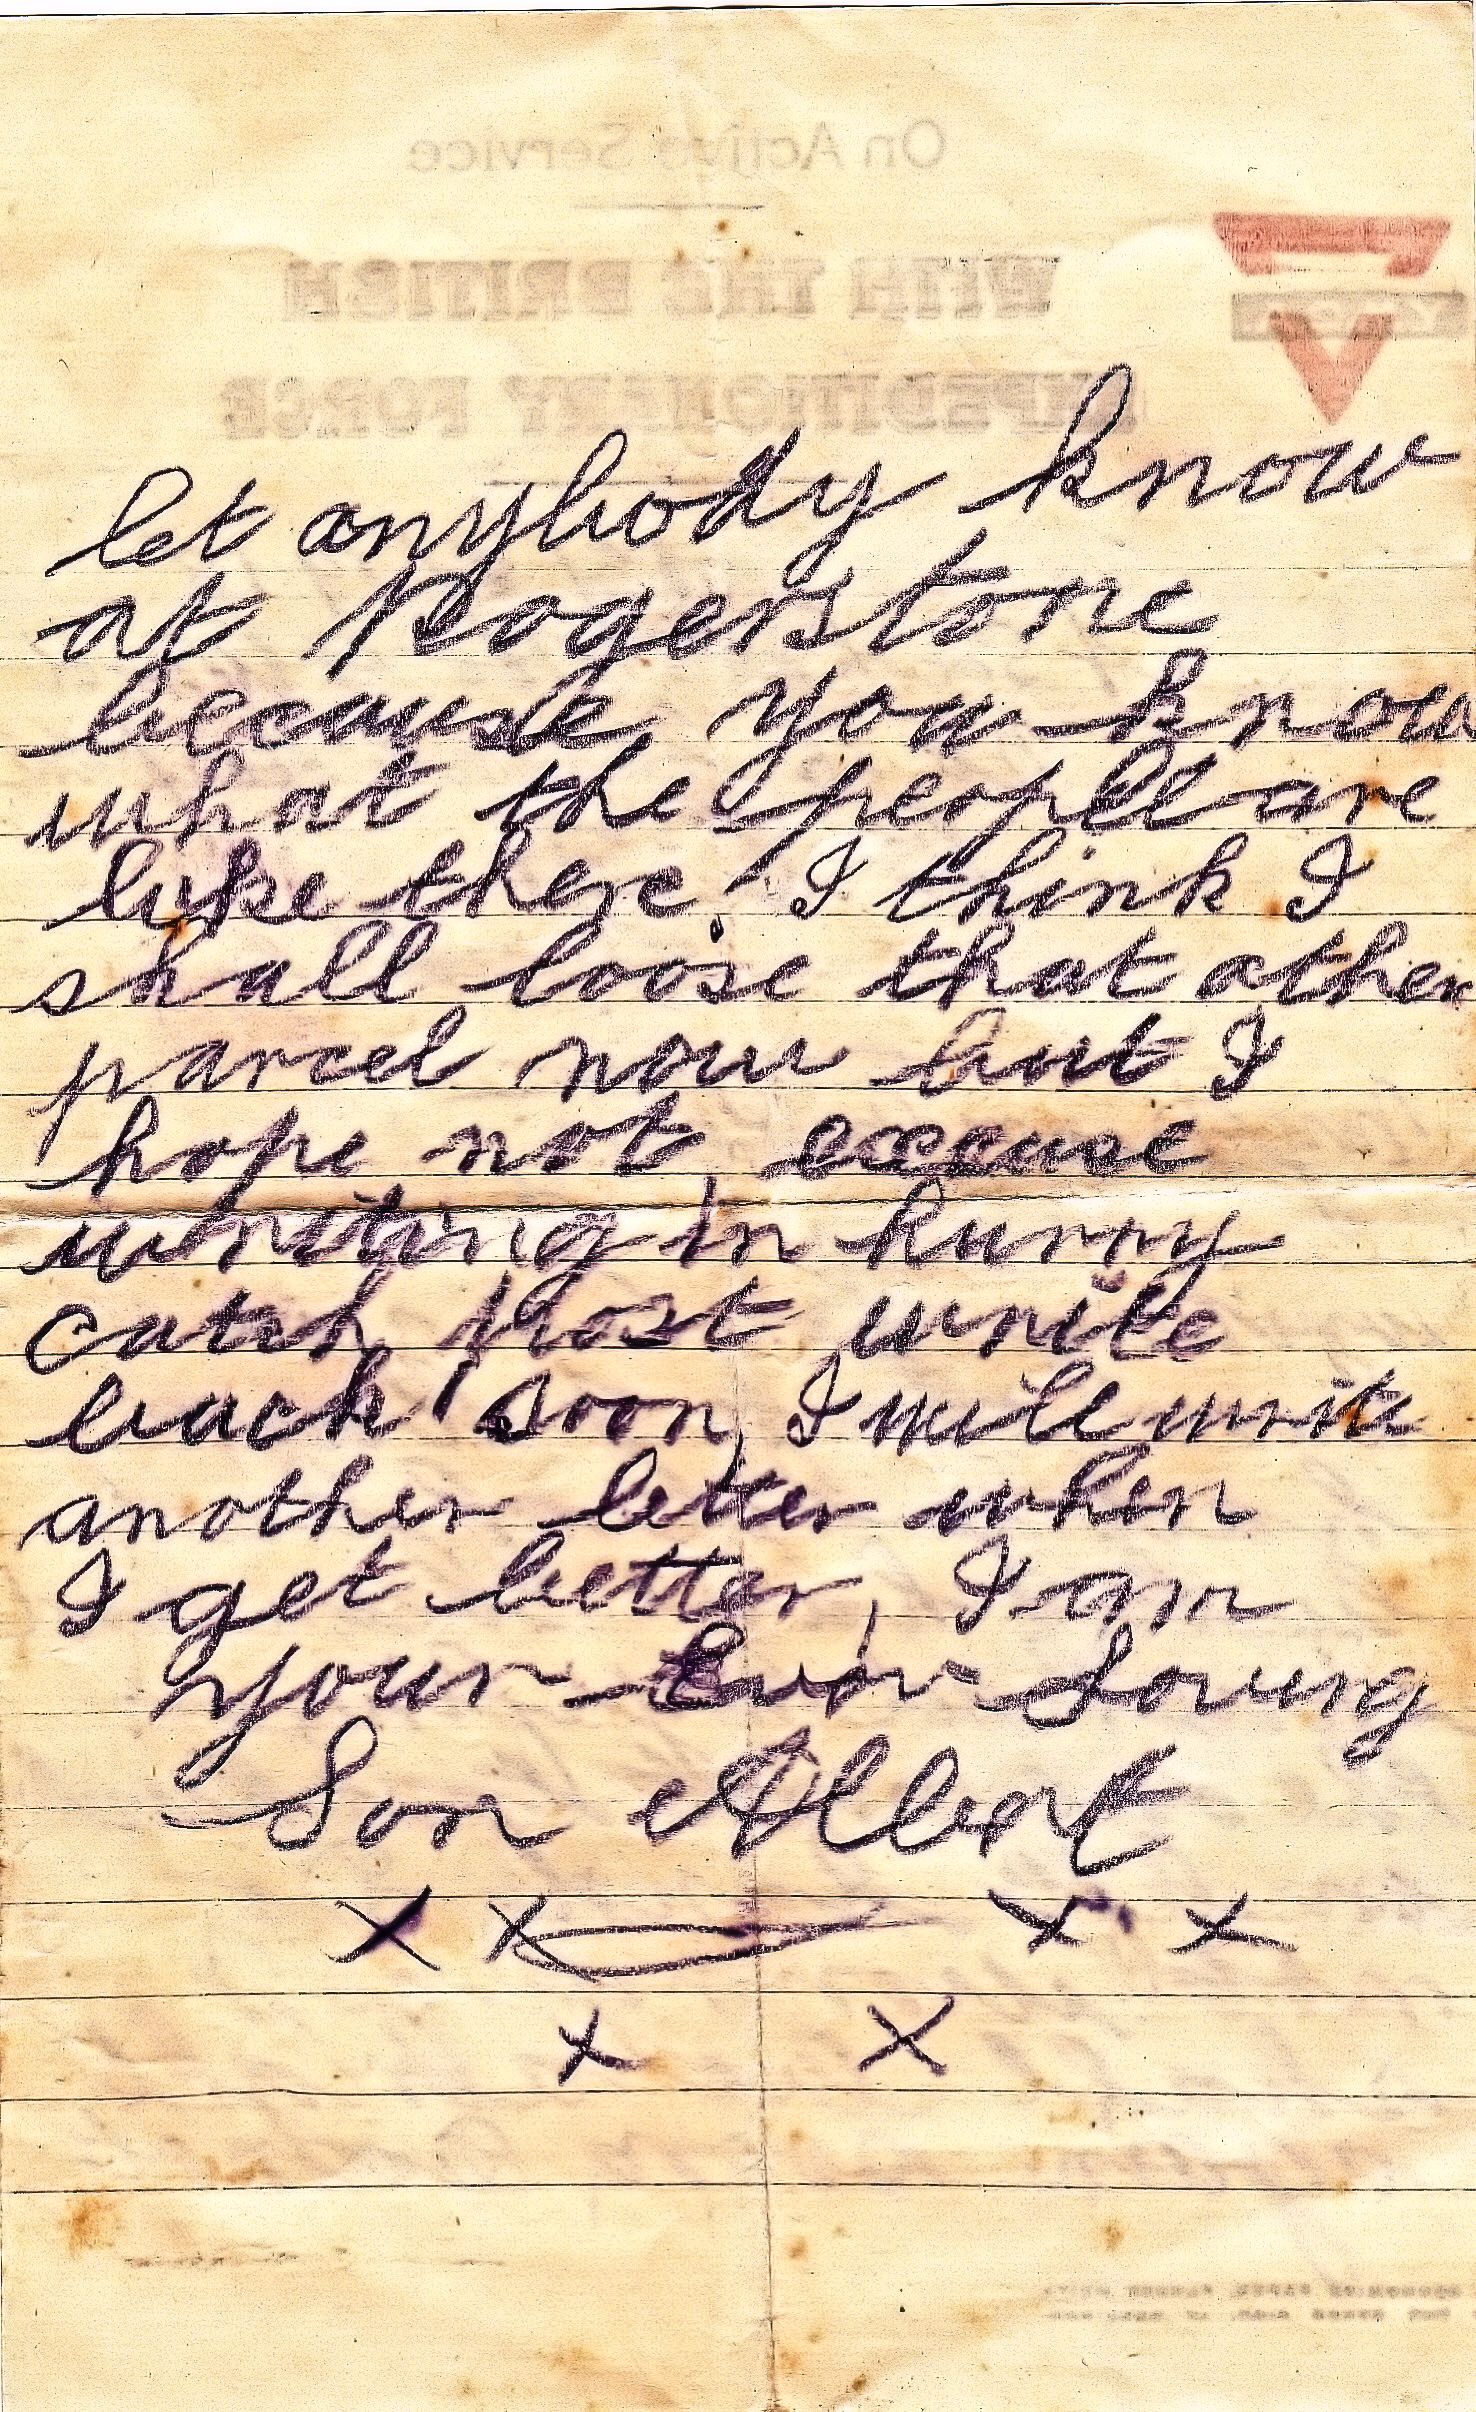 On Active Service
WITH THE BRITISH
EXPEDITIONARY FORCE
let anybody know
at Rogerstone
because you know
what the people are
like there. I think I
shall loose that other
parcel now but I
hope not, excuse
writing in hurry
catch post write
back soon, I will write
another letter when
I get better, I am
your Ever Loving
Son Albert
x x x x
x x